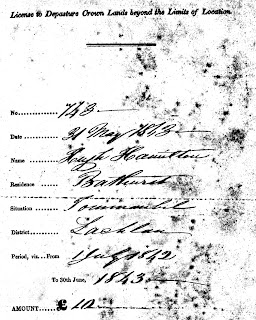 License to Depasture Crown Lands beyond the Limits of Location.
No. 743
Date 31 May 1843
Name Hugh Hamilton
Residence Bathurst
Situation
District Lachlan
Period, viz. From 1 July 1842
To 30th June, 1843
AMOUNT £ 10